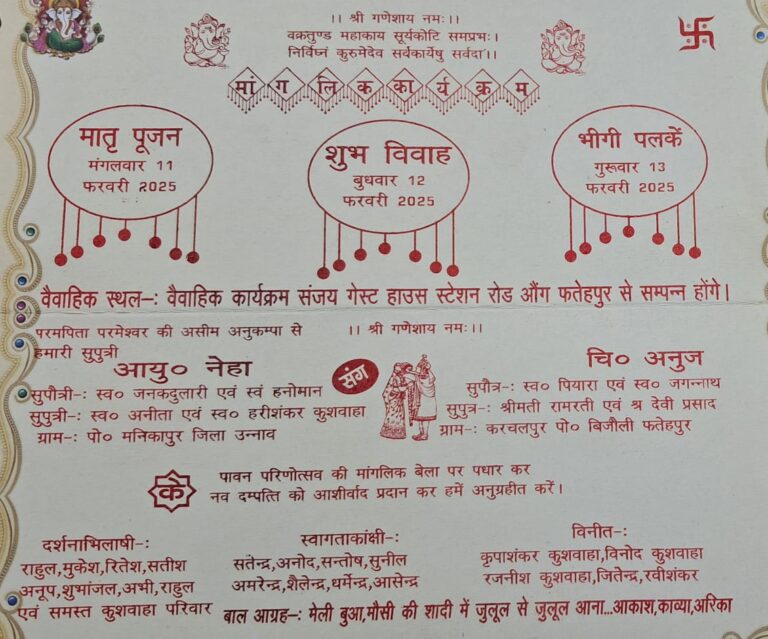 ।। श्री गणेशाय नमः।।
वक्रतुण्ड महाकाय सूर्यकोटि समप्रभः।
निर्विघ्नं कुरुमेदेव सर्वकार्येषु सर्वदा।।
मांगलिक कार्यक्रम
मातृ पूजन
मंगलवार 11
फरवरी 2025
शुभ विवाह
बुधवार 12
फरवरी 2025
भीगी पलकें
गुरूवार 13
फरवरी 2025
वैवाहिक स्थल–: वैवाहिक कार्यक्रम संजय गेस्ट हाउस स्टेशन रोड औंग फतेहपुर से सम्पन्न होंगे।
परमपिता परमेश्वर की असीम अनुकम्पा से
।। श्री गणेशाय नमः।।
हमारी सुपुत्री
आयु० नेहा
सुपौत्री–: स्व० जनकदुलारी एवं स्वं हनोमान
सुपुत्री–: स्व० अनीता एवं स्व० हरीशंकर कुशवाहा
ग्राम–: पो० मनिकापुर जिला उन्नाव
संग
चि० अनुज
सुपौत्र–: स्व० पियारा एवं स्व० जगन्नाथ
सुपुत्र–: श्रीमती रामरती एवं श्र देवी प्रसाद
ग्राम–: करचलपुर पो० बिजौली फतेहपुर
के
पावन परिणोत्सव की मांगलिक बेला पर पधार कर
नव दम्पत्ति को आशीर्वाद प्रदान कर हमें अनुग्रहीत करें।
दर्शनाभिलाषी–:
राहुल,मुकेश,रितेश,सतीश
अनूप,शुभांजल,अभी,राहुल
एवं समस्त कुशवाहा परिवार
स्वागताकांक्षी–:
सतेन्द्र,अनोद,सन्तोष,सुनील
अमरेन्द्र,शैलेन्द्र,धर्मेन्द्र,आसेन्द्र
विनीत–:
कृपाशंकर कुशवाहा,विनोद कुशवाहा
रजनीश कुशवाहा,जितेन्द्र,रवीशंकर
बाल आग्रह–: मेली बुआ,मौसी की शादी में जुलूल से जुलूल आना...आकाश,काव्या,अरिका